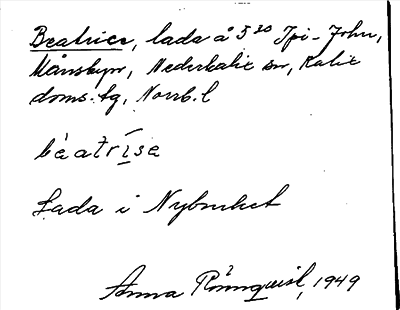 Beatrice, lada å 5²⁰ Ipi-John,
Månsbyn, Nederkalix sn, Kalix
doms. tg, Norrb. l
béatrise
Lada i Nybruket
Anna Rönnquist, 1949